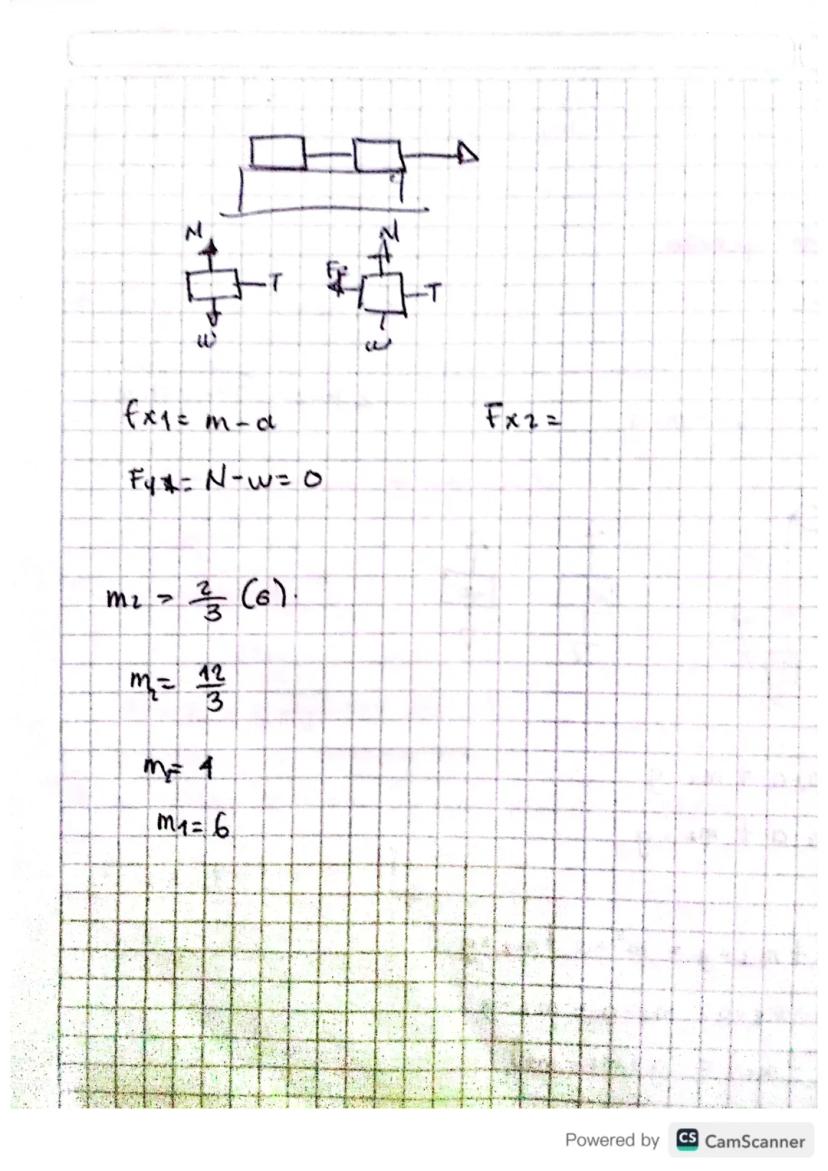 N
N
T
Fr
T
w
w
fx1 = m - a
Fx2 =
Fy1 = N - w = 0
m2 = 2/3 (6).
m2 = 12/3
m2 = 4
m1 = 6
Powered by CS CamScanner